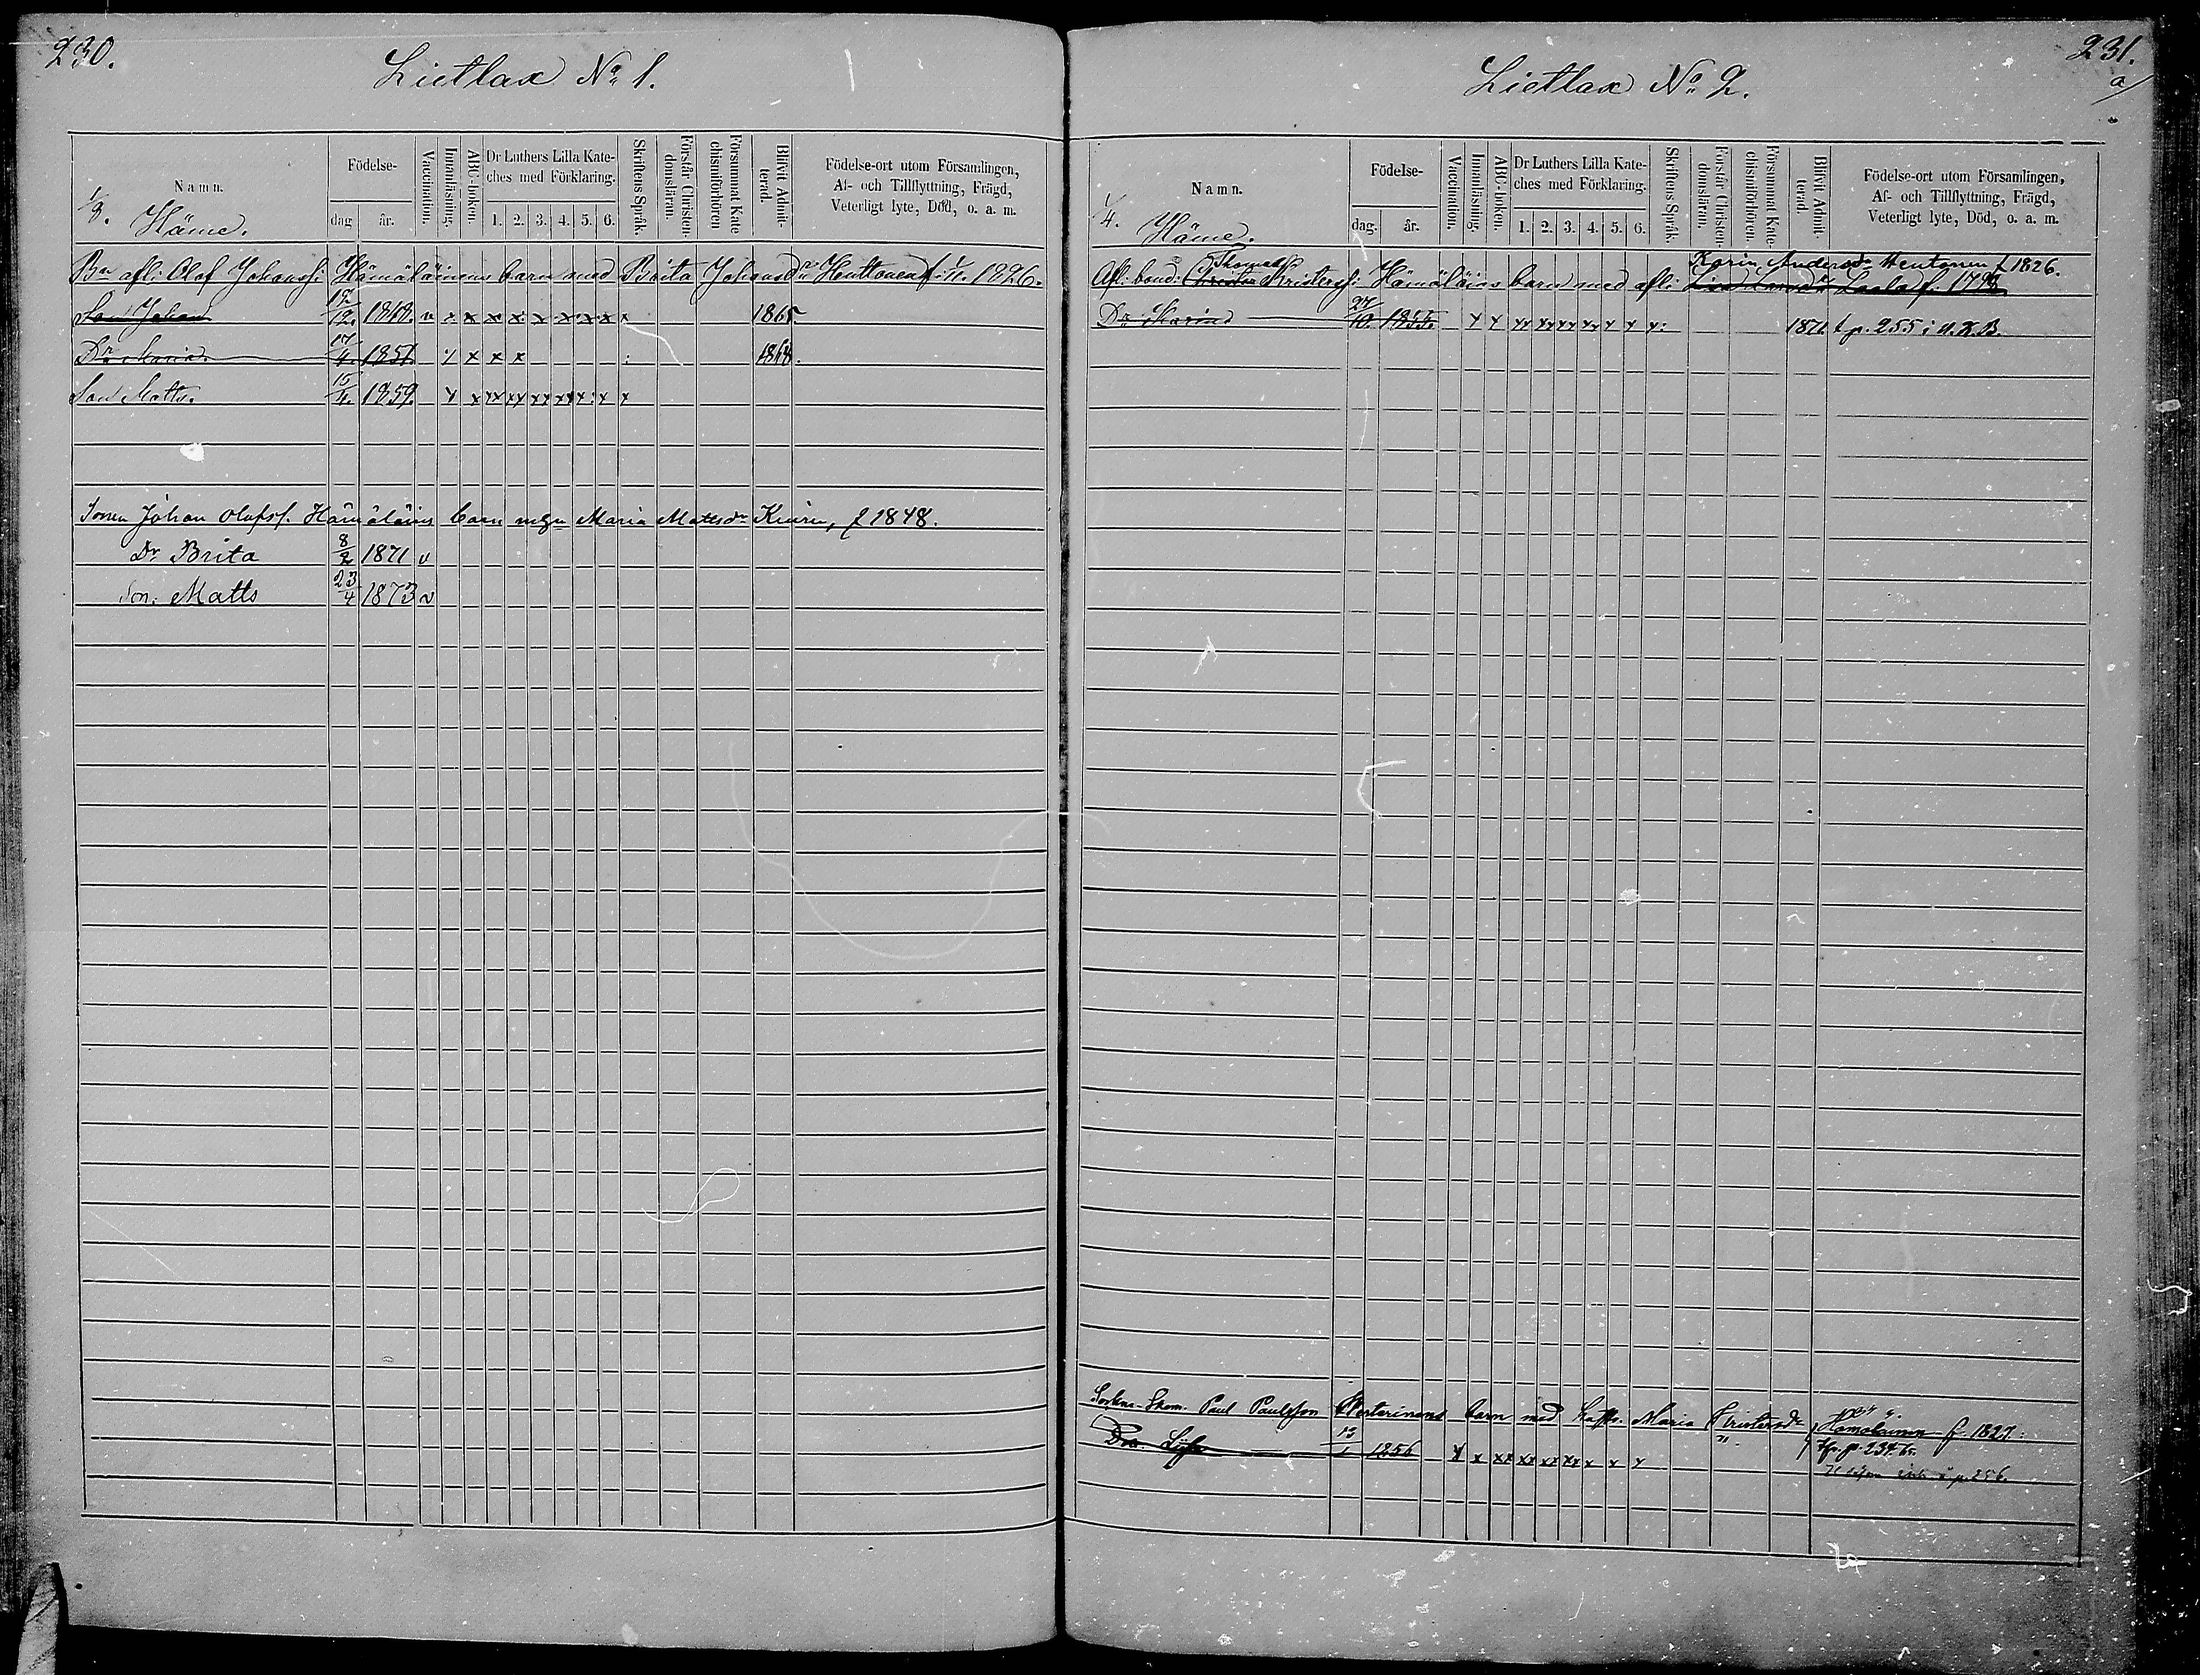 230.
Lietlax No 1.
Namn.
Födelse-
dag
år.
Vaccination.
Innanläsning.
ABC-boken.
Dr Luthers Lilla Kate-
ches med Förklaring.
1. 2. 3. 4. 5. 6.
Skriftens Språk.
Förstår Christen-
domsläran.
Försummat Kate
chismiförhören
Blifvit Admit-
terad.
Födelse-ort utom Församlingen,
Af- och Tillflyttning, Frägd,
Veterligt lyte, Död, o. a. m.
1/3. Häme.
Bn afl: Olof Johanss: Hämäläinens barn med Brita Johansdr Huttonen f: 1826.
Son Johan 1848. v x x x x x x x x x 1865
Dr Maria. 17/4. 1851 x x x x : 1868.
Son Matts. 15/4. 1859. x x xx xx xx xx x x x
Sonen Johan Olofss. Hämäläins barn m hu Maria Mattsdr Kuirin, f 1848.
Dr Brita 8/2 1871 v
Son: Matts 23/4 1873 v
231.
a/
Lietlax No 2.
Namn.
Födelse-
dag.
år.
Vaccination.
Innanläsning.
ABC-boken.
Dr Luthers Lilla Kate-
ches med Förklaring.
1. 2. 3. 4. 5. 6.
Skriftens Språk.
Förstår Christen-
domsläran.
Försummat Kate-
chismiförhören.
Blifvit Admit-
terad.
Födelse-ort utom Församlingen,
Af- och Tillflyttning, Frägd,
Veterligt lyte, Död, o. a. m.
1/4. Häme.
Thomas Karin Andersdr Hentonen f 1826.
Afl: bond: Christer Kristerss: Hämäläins barn med afl: Laalo f. 1793
Dr Karin 27/10. 1853. x x xx xx xx xx x x x: 1871 t p. 255 i n. K. B.
Paul Paulsson barn med Maria Kristersdr Hämäläinen f. 1827:
Dr. 13/1 1856 x x xx xx xx xx x x x tfr. p. 234 b.
p. 256.